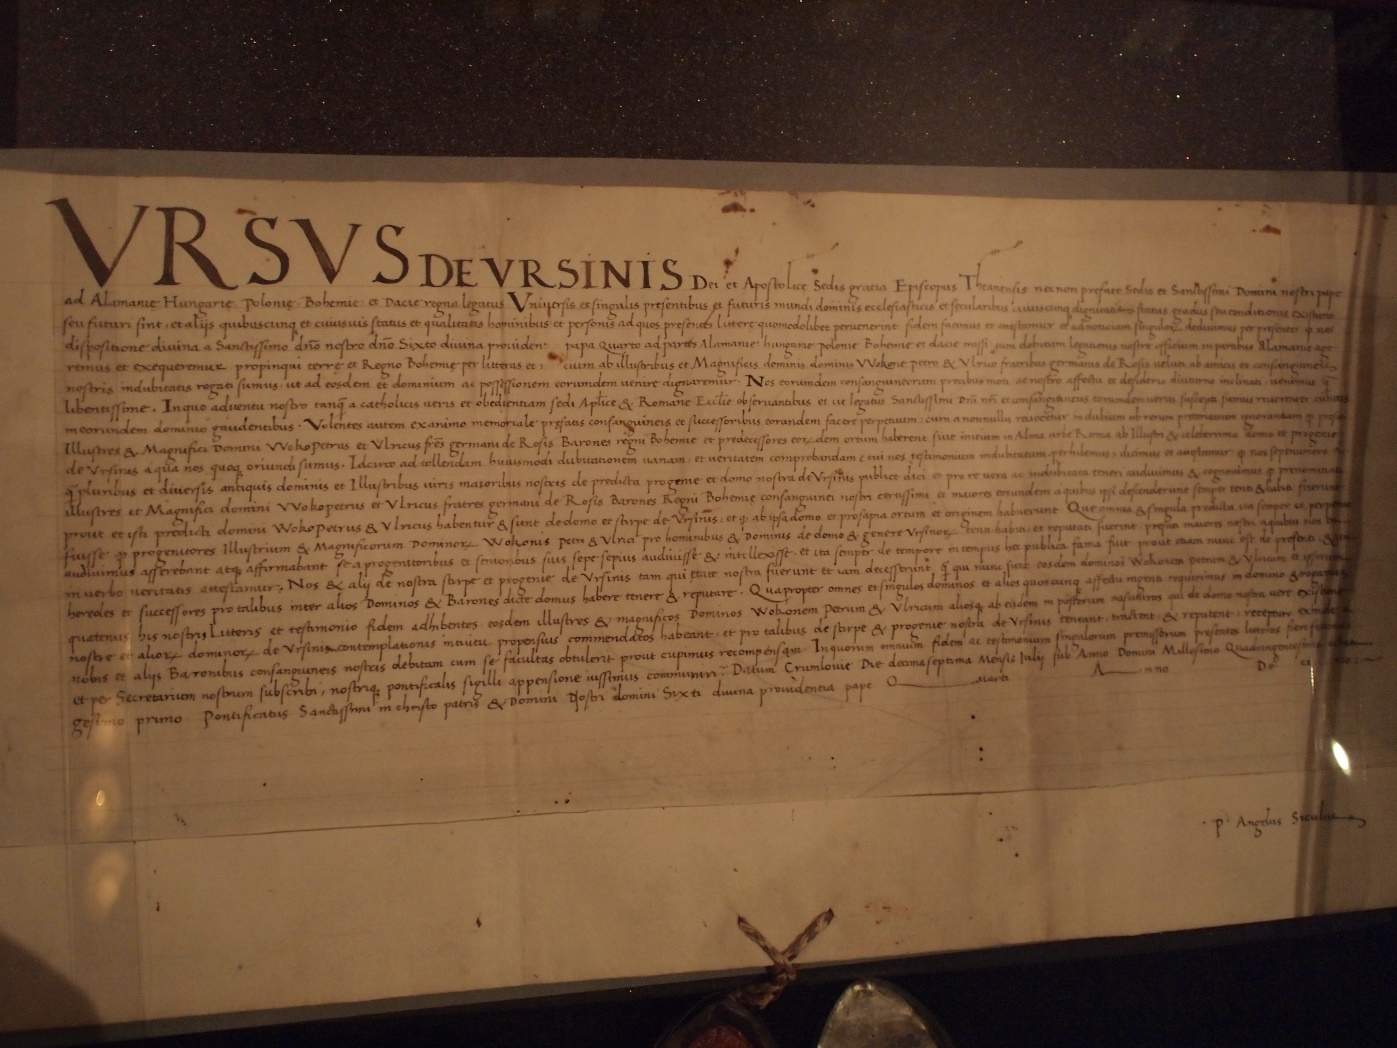 VRSVS DE VRSINIS Dei et Apostolice Sedis gracia Episcopus Theanensis necnon prefate Sedis et Sanctissimi Domini nostri pape
ad Alamanie Hungarie Polonie Bohemie et Dacie regna legatus Vniversis et singulis presentibus et futuris mundi dominis ecclesiasticis et secularibus cuiuscunq dignitatis status gradus seu conditionis existant
seu futuri sint, et alijs quibuscunq et cuiusuis status et qualitatis hominibus et personis ad quos presentes littere quomodolibet peruenerint fidem facimus et attestamur et ad noticiam deducimus per presentes q nos
dispositione divina a Sanctissimo dno nostro dno Sixto divina provident papa Quarto ad partes Alamanie hungarie polonie Bohemie et dacie missi cum debitum legationis nostre officium in partibus Alamanie
remus et exequeremur propinqui terre et Regno Bohemie per litteras et cum ab illustribus et Magnificis dominis dominis Wokone petro & Vlrico fratribus germanis de Rosis veluti ab amicis et consanguineis
nostris indubitatis rogati sumus, ut ad eosdem et dominium ac possessionem eorundem venire dignaremur. Nos eorundem consanguineorum precibus moti ac nostro affectu et desiderio diuturno inclinati, venimus q
libentissime. In quo adventu nostro tanq a catholicis veris et obedientiam sedi Aplice & Romane Ecclie observantibus et ut legatus Sanctissimi Dni nri et consanguineus eorundem
in eorundem dominio gaudentibus. Volentes autem ex animo memoriale prefatis consanguineis et successoribus eorundem facere perpetuum, cum a nonnullis in dubium ob rerum preteritarum ignorantiam q
Illustres & Magnifici Domini Woko Petrus et Vlricus fres germani de Rosis Barones regni Bohemie et predecessores eorundem ortum haberent sive initium in Alma urbe Roma ab Illustri & celeberrima domo et progenie
de Vrsinis a qua nos quoq oriundi sumus. Idcirco ad tollendam huiusmodi dubitationem vanam, et veritatem comprobandam testimonium indubitatum perhibemus, dicimus et attestamur q nos
q pluribus et diversis antiquis dominis et Illustribus viris maioribus nostris de predicta progenie et domo nostra de Vrsinis publice dici et pro re vera ac indubitata teneri audivimus & cognovimus q prenominati
illustres et Magnifici domini Woko petrus et Vlricus fratres germani de Rosis Barones Regni Bohemie consanguinei nostri certissimi, et maiores eorundem a quibus ipsi descenderunt semper tenti & habiti fuerunt
prout et isti predicti domini Woko Petrus & Vlricus habentur & sunt de domo et stirpe de Vrsinis, et q ab ipsa domo et prosapia ortum et originem habuerunt Que omnia & singula predicta ita semper
fuisse q progenitores Illustrium & Magnificorum Dominor Wokonis petri & Vlrici pro hominibus & Dominis de domo & genere Vrsinor tenti habiti et reputati fuerint, prefati maiores nostri a quibus nos
audivimus asserebant atq affirmabant se a progenitoribus et senioribus suis sepe sepius audivisse & intellexisse, et ita semper de tempore in tempus hec publica fama fuit prout etiam nunc est de presenti
in verbo veritatis attestamur. Nos & alij de nostra stirpe et progenie de Vrsinis tam qui etate nostra fuerunt et iam decesserunt, q qui nunc sunt eosdem dominos Wokonem petrum & Vlricum et
heredes et successores pro talibus inter alios Dominos & Barones dicte domus habere tenere & reputare. Quapropter omnes et singulos dominos et alios quoscunq affectu requirimus in domino & rogamus
quatenus his nostris Litteris et testimonio fidem adhibentes eosdem illustres & magnificos Dominos Wokonem Petrum & Vlricum aliosq ab eisdem in posterum nascituros qui de domo nostra vere existunt
nostre et alior dominor de Vrsinis contemplationis intuitu propensius commendatos habeant, et pro talibus de stirpe & progenie nostra de Vrsinis teneant, tractent & reputent, recepturi exinde
nobis et alijs Baronibus consanguineis nostris debitam cum se facultas obtulerit prout cupimus recompensam. In quorum omnium fidem ac testimonium singulorum premissorum presentes litteras fieri
et per Secretarium nostrum subscribi, nostriq pontificalis sigilli appensione iussimus communiri. Datum Crumlovie Die decimaseptima Mensis Iulij sub Anno Domini Millesimo Quadringentesimo
gesimo primo Pontificatus Sanctissimi in christo patris & Domini Nostri domini Sixti divina providentia pape Quarti Anno Decimo
p Angelus Siculus